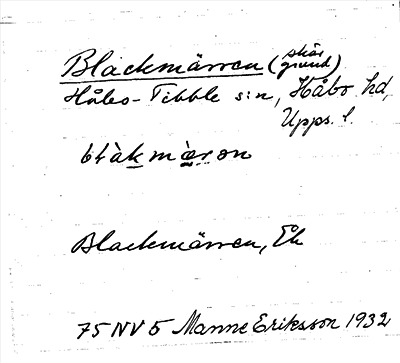 Blackmärren (skär grund)
Håbo-Tibble s:n, Håbo hd,
Upps. l.
blàkmæ̀ron
Blackmärren, Ek
75 NV 5 Manne Eriksson 1932